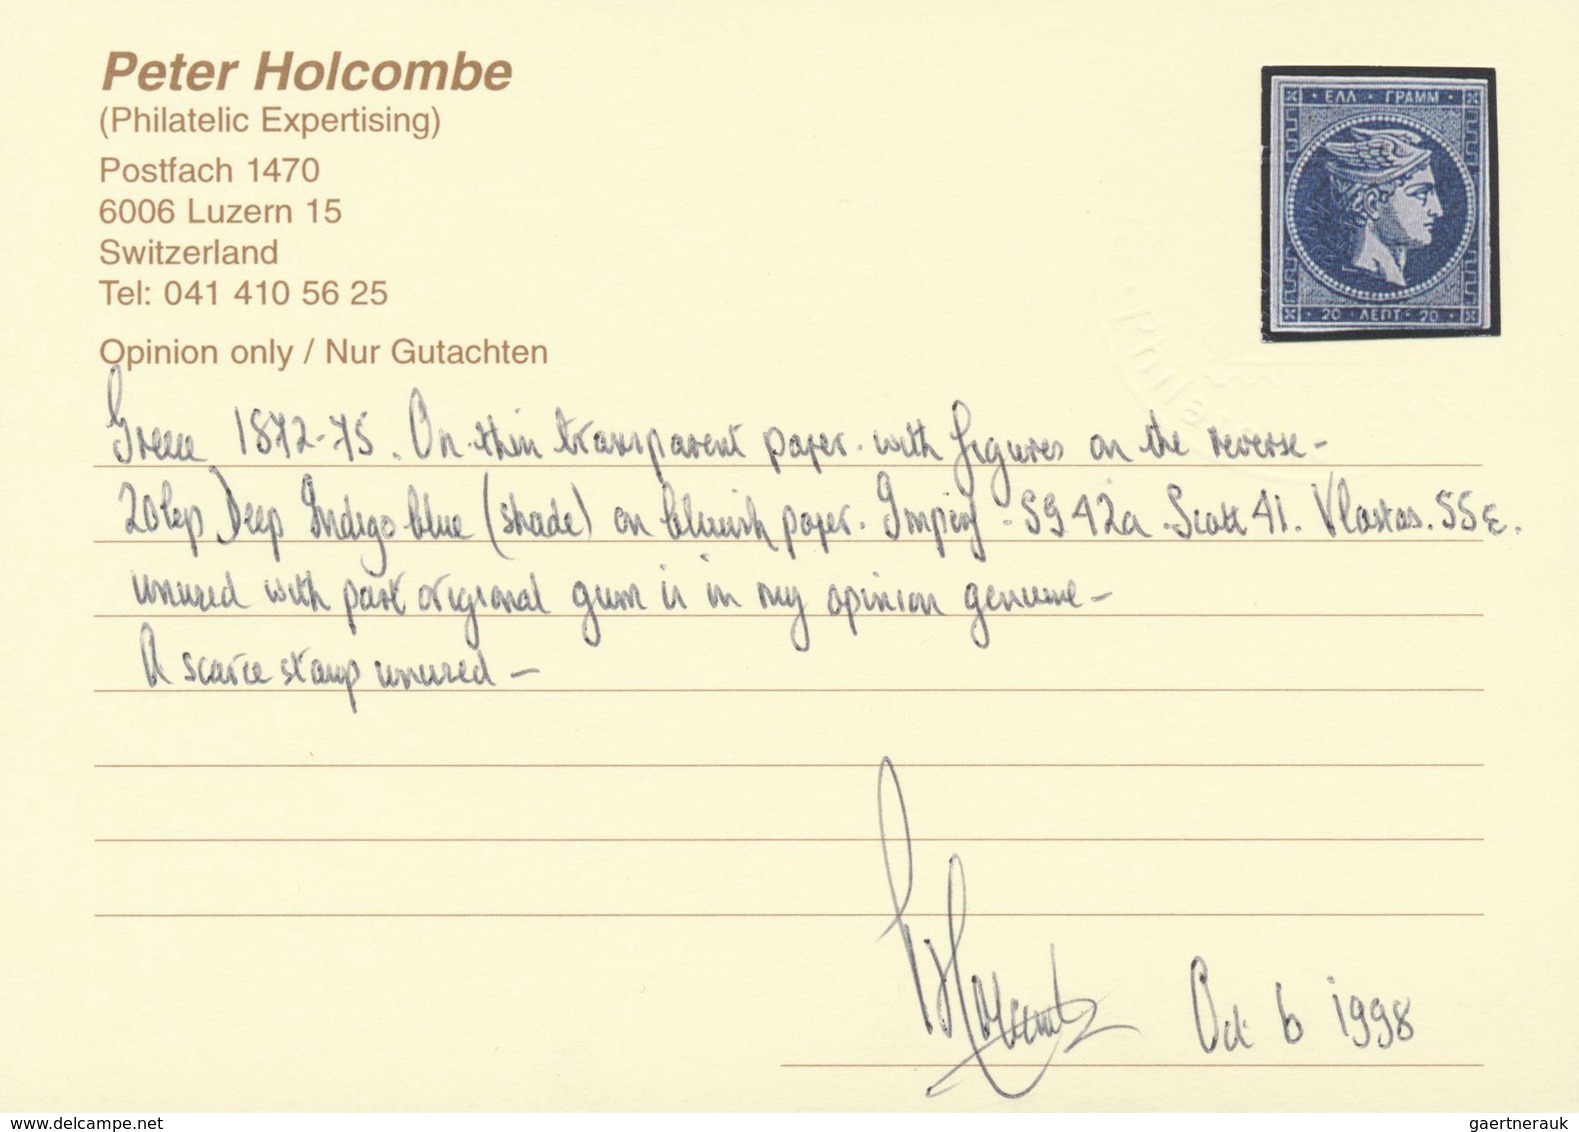 Peter Holcombe
(Philatelic Expertising)
Postfach 1470
6006 Luzern 15
Switzerland
Tel: 041 410 56 25
Opinion only / Nur Gutachten
ΕΛΛ · ΓΡΑΜΜ
20 · ΛΕΠΤ · 20
Greece 1872-75. On thin transparent paper. with figures on the reverse -
20 lep Deep Indigo blue (shade) on bluish paper. Imperf - SG 42a. Scott 41. Vlastos. 55ε.
unused with part original gum is in my opinion genuine -
A scarce stamp unused -
Oct 6 1998
www.delcampe.net
gaertnerauk